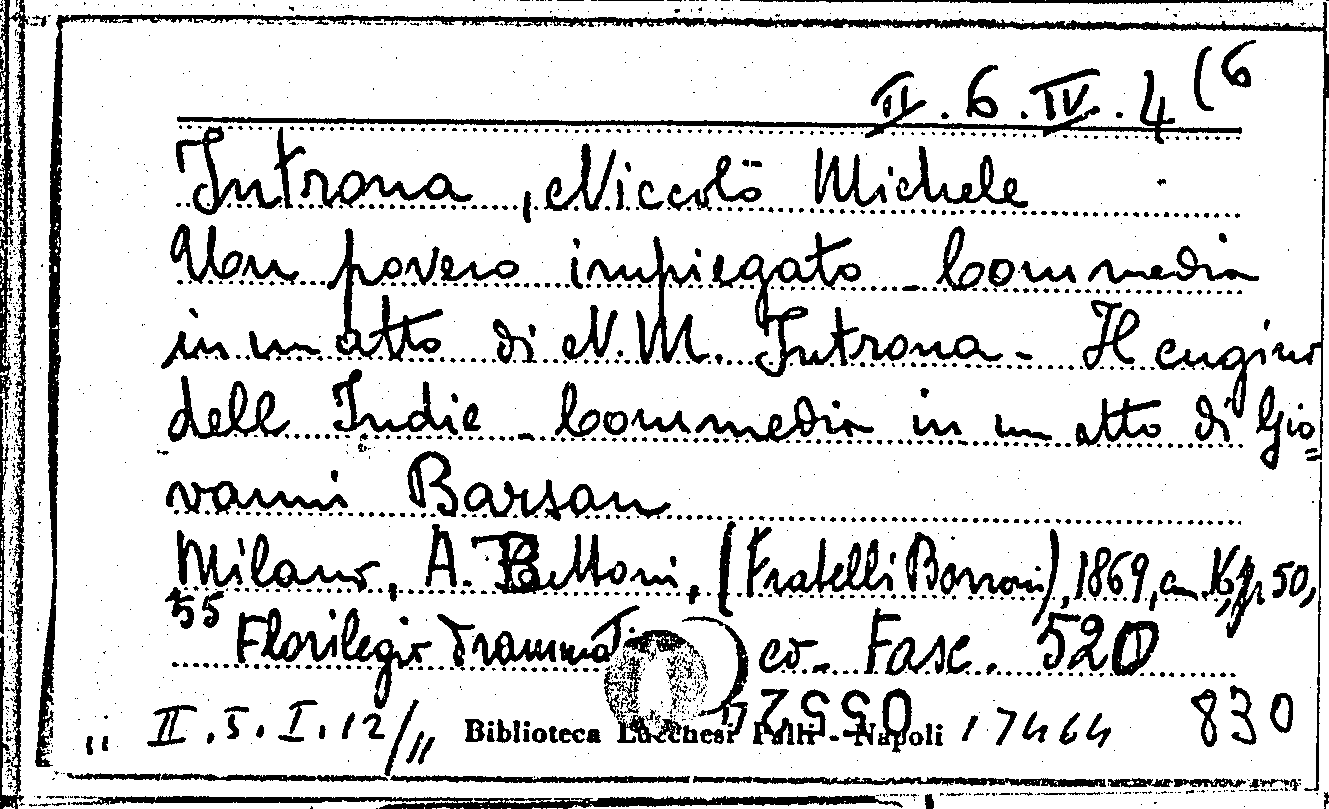 II. 6. IV. 4 (6
Introna, Niccolò Michele
Un povero impiegato - Commedia
in un atto di N. M. Introna - Il cugino
dell Indie - Commedia in un atto di Gio=
vanni Barsan
Milano, A. Bettoni, (Fratelli Borroni), 1869, in 16, pp 50,
55 Florilegio drammatico - Fasc. 520
„ II. 5. I. 12/„ Biblioteca Lucchesi Palli - Napoli 17464 830